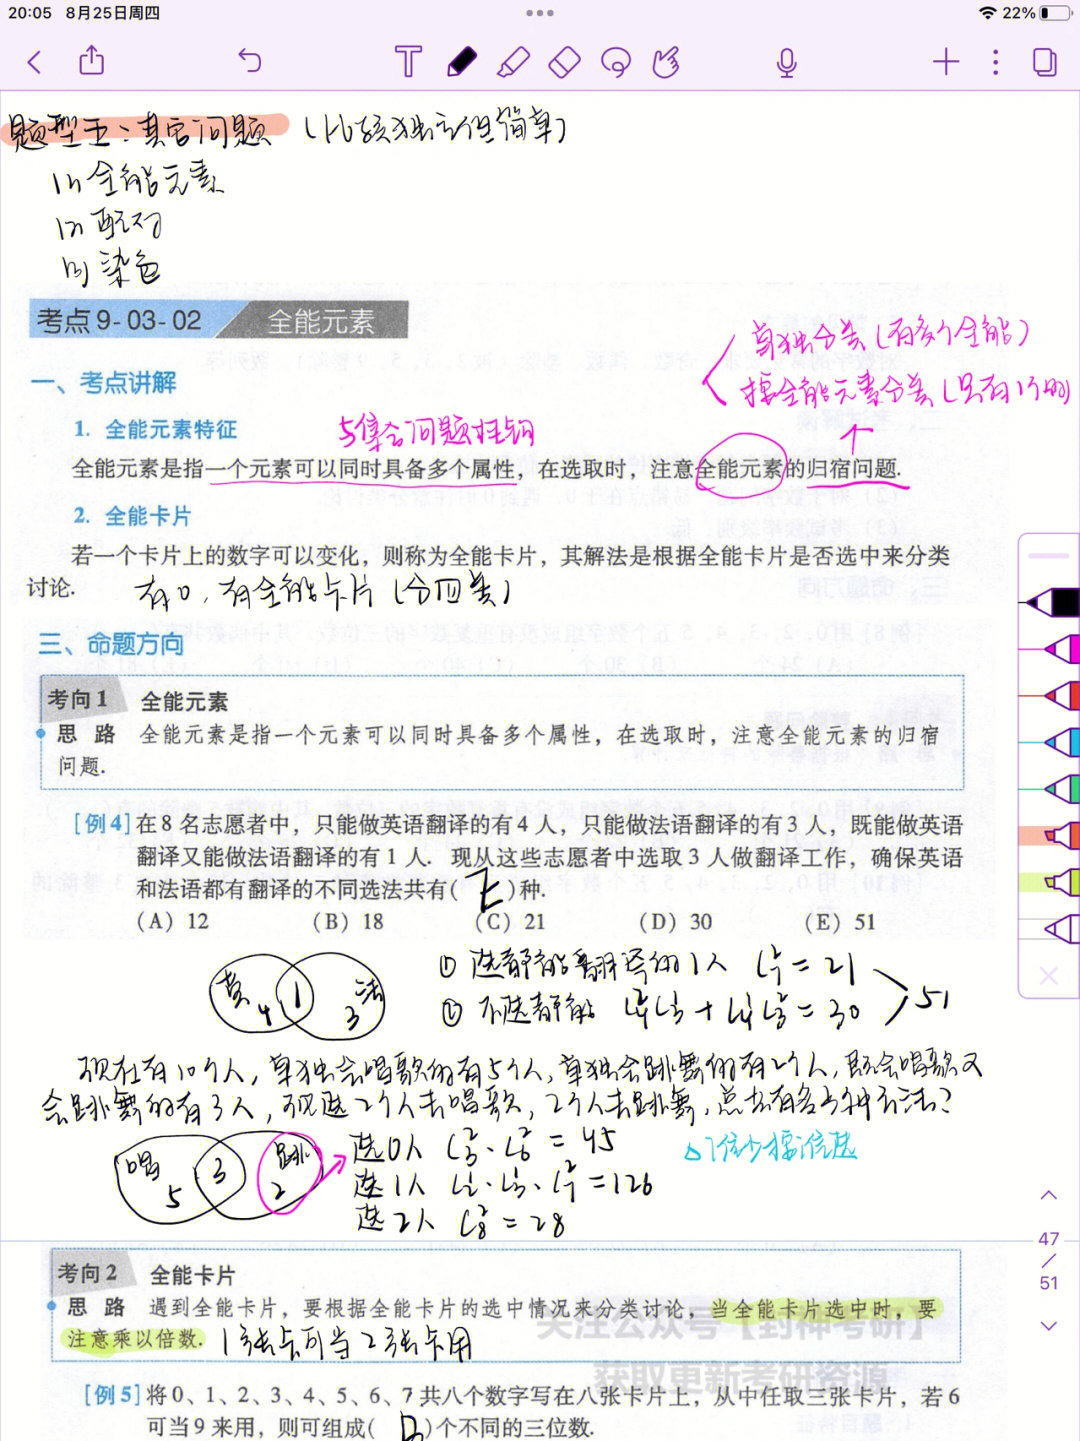 20:05 8月25日周四
22%
题型五:其它问题 (比较独立但简单)
(1) 全能元素
(2) 配对
(3) 染色
考点9-03-02 全能元素
单独分类(有多个全能)
按全能元素分类(只有1个时)
一、考点讲解
1. 全能元素特征
与集合问题挂钩
全能元素是指一个元素可以同时具备多个属性,在选取时,注意全能元素的归宿问题.
2. 全能卡片
若一个卡片上的数字可以变化,则称为全能卡片,其解法是根据全能卡片是否选中来分类
讨论.
有0,有全能卡片(分四类)
三、命题方向
考向1 全能元素
思路 全能元素是指一个元素可以同时具备多个属性,在选取时,注意全能元素的归宿
问题.
[例4]在8名志愿者中,只能做英语翻译的有4人,只能做法语翻译的有3人,既能做英语
翻译又能做法语翻译的有1人.现从这些志愿者中选取3人做翻译工作,确保英语
和法语都有翻译的不同选法共有( E )种.
(A)12 (B)18 (C)21 (D)30 (E)51
英 4 1 法 3
① 选都能翻译的1人 C₇² = 21
② 不选都能 C₄²C₃¹ + C₄¹C₃² = 30
51
现在有10个人,单独会唱歌的有5个人,单独会跳舞的有2个人,既会唱歌又
会跳舞的有3人,现选2个人去唱歌,2个人去跳舞,总共有多少种方法?
唱 5 3 跳 2
选0人 C₃²·C₆² = 45
选1人 C₂¹·C₃¹·C₇² = 126
选2人 C₈² = 28
考向2 全能卡片
思路 遇到全能卡片,要根据全能卡片的选中情况来分类讨论,当全能卡片选中时,要
注意乘以倍数.
1张卡可当2张卡用
关注公众号【封神考研】
获取更新考研资源
[例5]将0、1、2、3、4、5、6、7共八个数字写在八张卡片上,从中任取三张卡片,若6
可当9来用,则可组成( B )个不同的三位数.
47
/
51